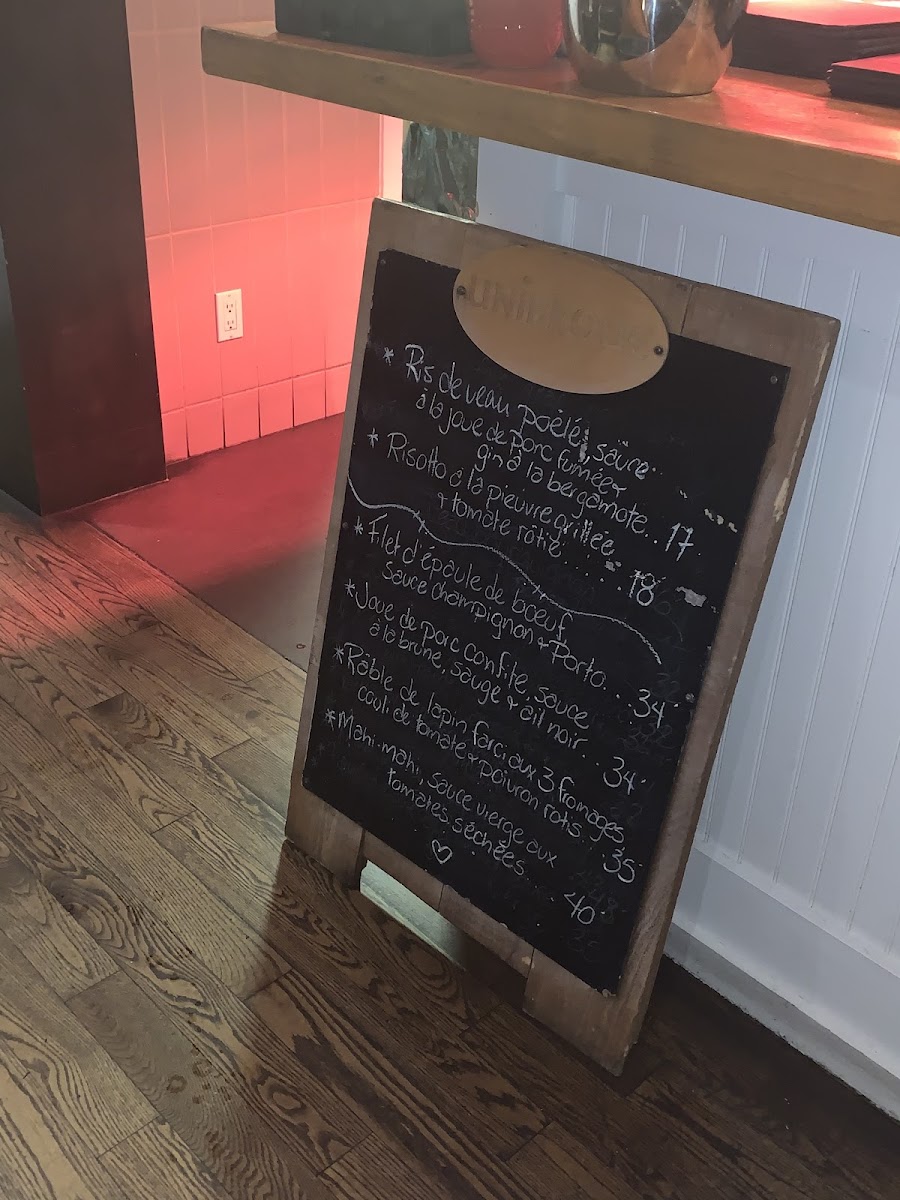 * Ris de veau poêlé, sauce
à la joue de porc fumée &
gin à la bergamote.. 17.
* Risotto à la pieuvre grillée
& tomate rôtie ...... 18
* Filet d'épaule de bœuf
sauce champignon & Porto... 34.
* Joue de porc confite, sauce
à la brune, sauge & ail noir ... 34.
* Râble de lapin farci aux 3 fromages
couli de tomate & poivron rôtis... 35
* Mahi-mahi, sauce vierge aux
tomates séchées.... 40.